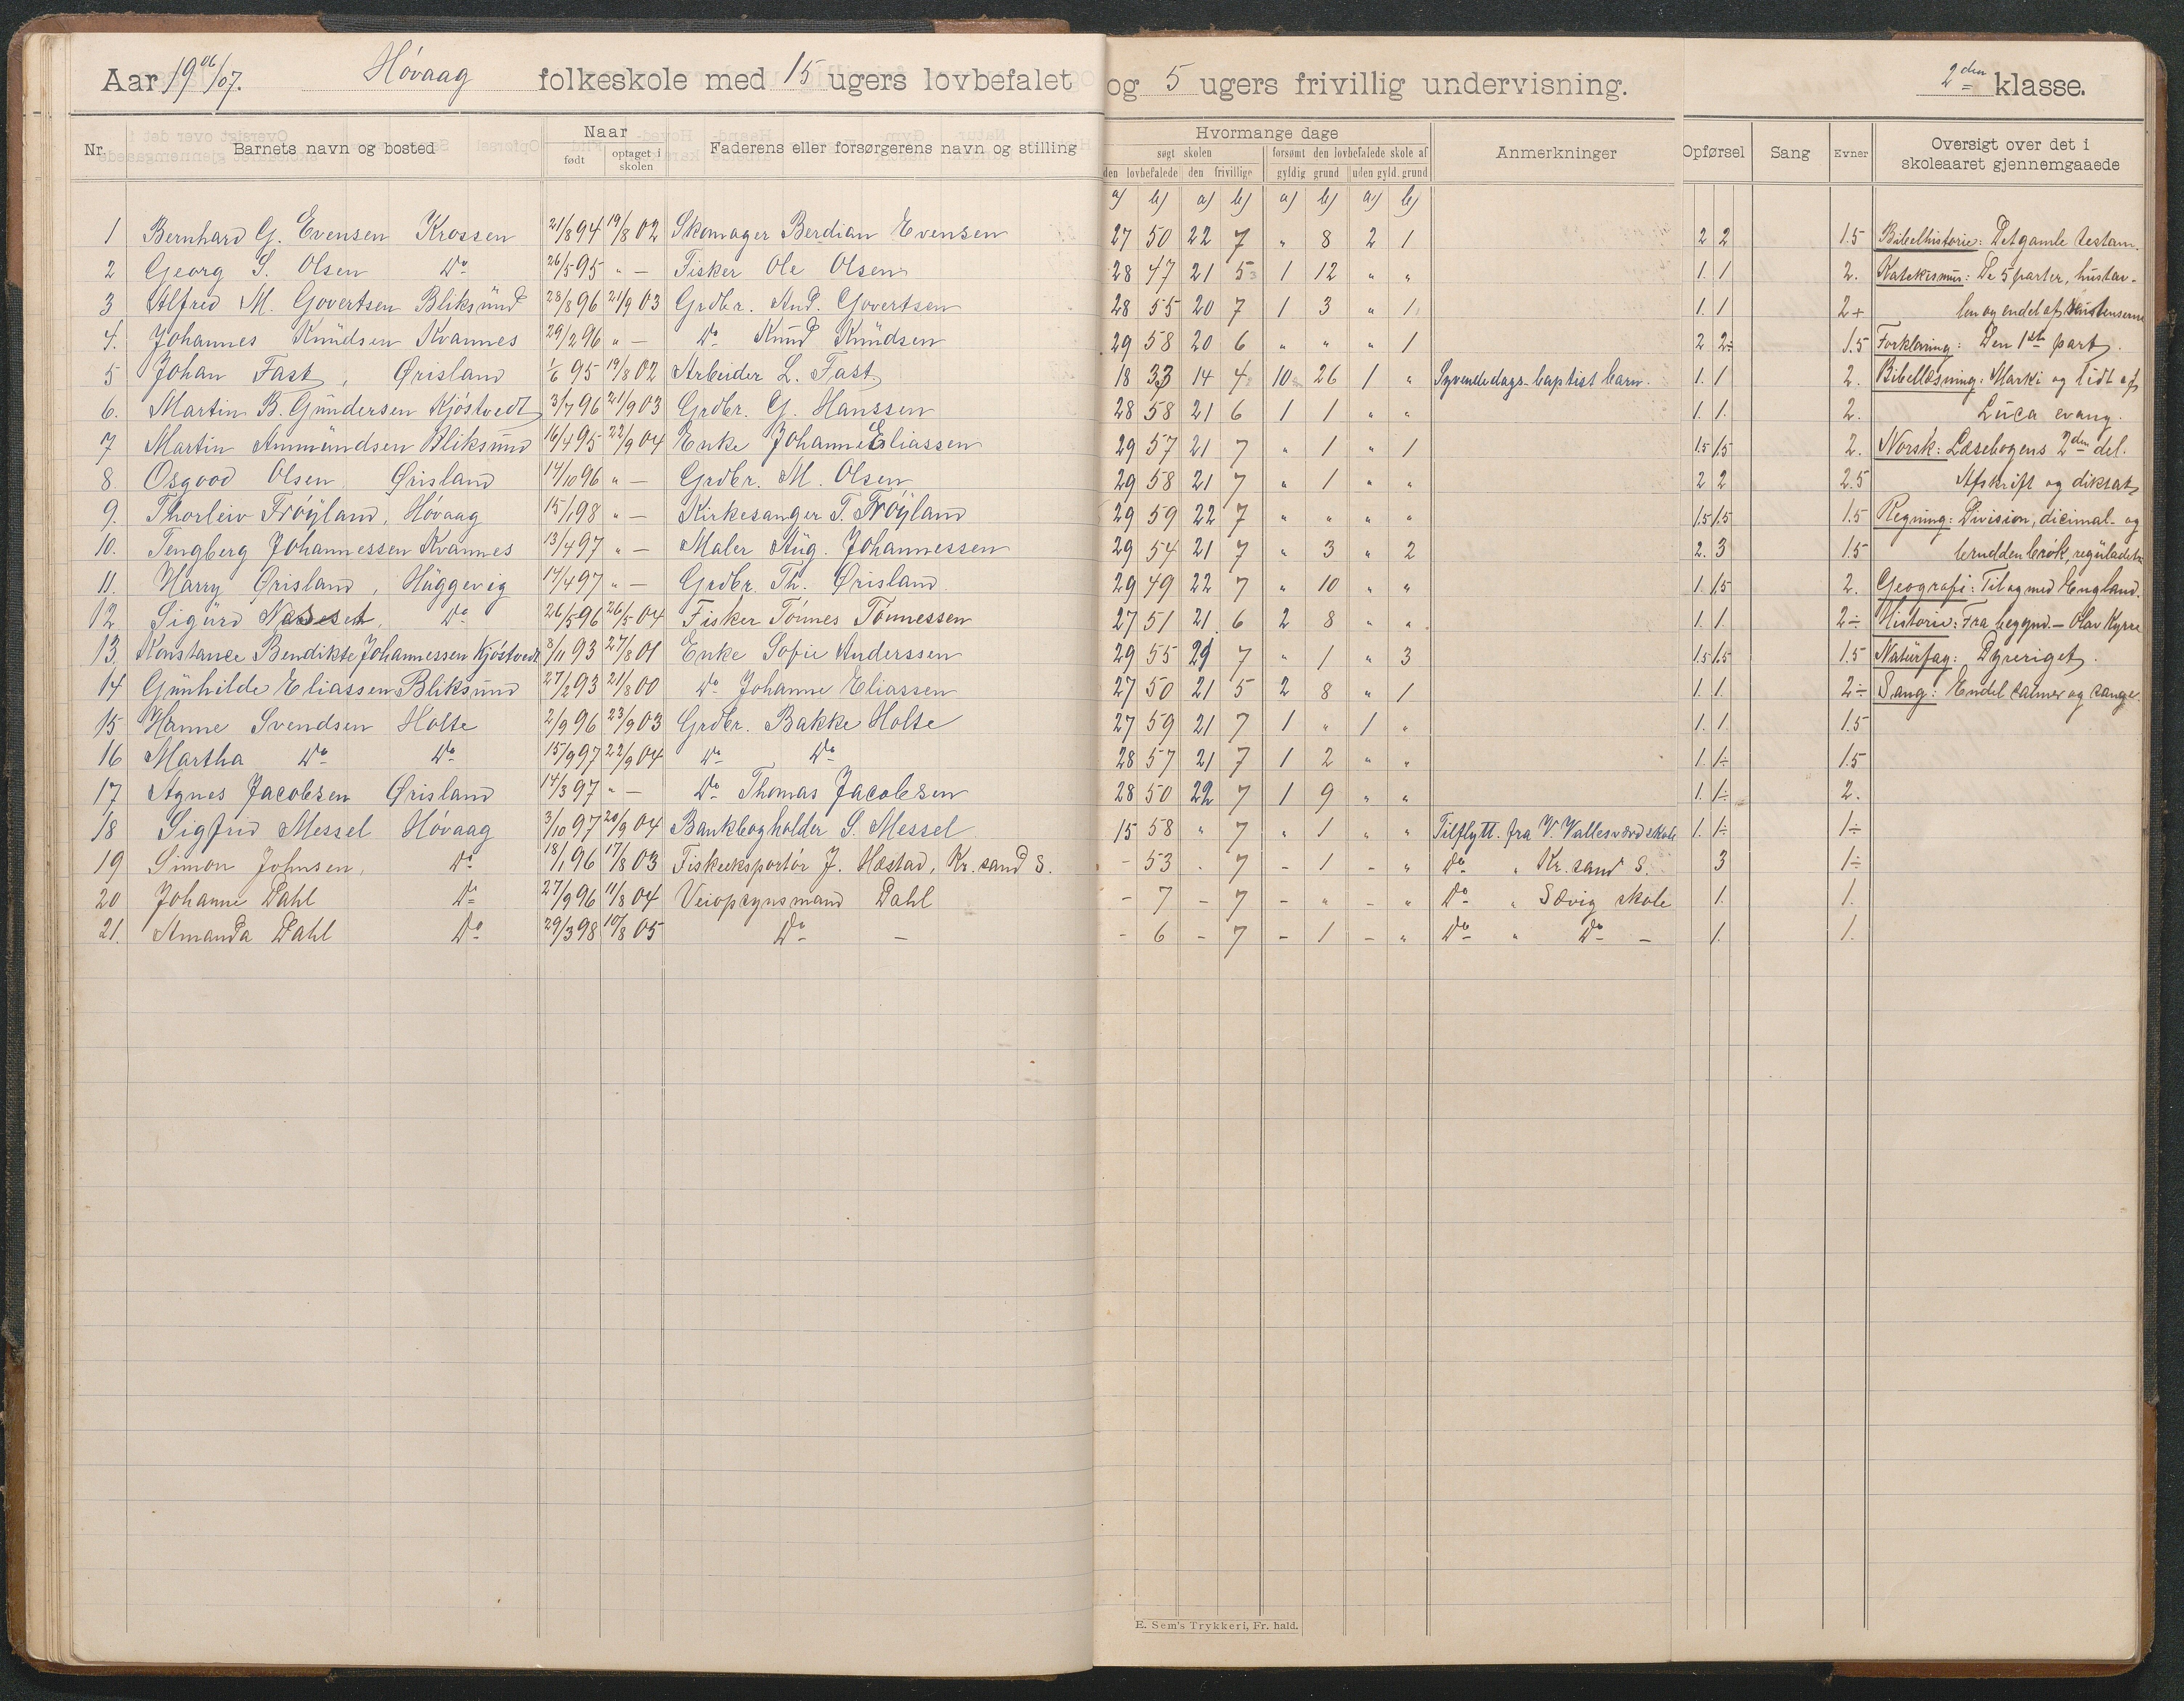 Aar 1906/07. Høvaag folkeskole med 15 ugers lovbefalet og 5 ugers frivillig undervisning. 2den klasse.
Nr. Barnets navn og bosted Naar født optaget i skolen Faderens eller forsørgerens navn og stilling Hvormange dage søgt skolen den lovbefalede den frivillige forsømt den lovbefalede skole af gyldig grund uden gyld. grund Anmerkninger Opførsel Sang Evner Oversigt over det i skoleaaret gjennemgaaede
a) b) a) b) a) b) a) b)
1 Bernhard G. Evensen Krossen 21/8 94 19/8 02 Skomager Berdian Evensen 27 50 22 7 " 8 2 1 2 2 1.5 Bibelhistorie: Det gamle testam.
2 Georg S. Olsen Do 26/5 95 " — Fisker Ole Olsen 28 47 21 5 1 12 " " 1. 1 2. Katekismus: De 5 parter, hustav-
3 Alfred M. Govertsen Bliksund 28/8 96 21/9 03 Grdbr. And. Govertsen 28 55 20 7 1 3 " 1 1. 1 2+ len og endel af
4. Johannes Knudsen Kvannes 29/2 96 " — Do Knud Knudsen 29 58 20 6 " " " 1 2 2÷ 1.5 Forklaring: Den 1ste part.
5 Johan Fast, Ørisland 1/6 95 19/8 02 Arbeider L. Fast 18 33 14 4 10 26 1 " Syvendedags-baptist barn. 1. 1 2. Bibellæsning: Marki og lidt af
6. Martin B. Gundersen Kjøstvedt 3/7 96 21/9 03 Grdbr. G. Hanssen 28 58 21 6 1 1 " " 1. 1. 2. Luca evang.
7 Martin Anmundsen Bliksund 16/4 95 22/9 04 Enke Johanne Eliassen 29 57 21 7 " 1 " 1 1.5 1.5 2. Norsk: Læsebogens 2den del.
8. Osgood Olsen Ørisland 14/10 96 " — Grdbr. M. Olsen 29 58 21 7 " 1 " " 2 2 2.5 Afskrift og diktat
9. Thorleiv Frøyland, Høvaag 15/1 98 " — Kirkesanger T. Frøyland 29 59 22 7 " " " " 1.5 1.5 1.5 Regning: Division, dicimal- og
10. Tengberg Johannessen Kvannes 13/4 97 " — Maler Aug. Johannessen 29 54 21 7 " 3 " 2 2. 3 1.5 brudden brøk, reguladetri
11. Harry Ørisland, Huggevig 14/4 97 " — Grdbr. Th. Ørisland. 29 49 22 7 " 10 " " 1. 1.5 2. Geografi: Til og med England.
12 Sigurd Næseset, Do 26/5 96 26/5 04 Fisker Tønnes Tønnessen 27 51 21 6 2 8 " " 1. 1. 2÷ Historie: Fra begynd. — Olav Kyrre
13. Konstance Bendikte Johannessen Kjøstvedt 8/11 93 27/8 01 Enke Sofie Anderssen 29 55 21 7 " 1 " 3 1.5 1.5 1.5 Naturfag: Dyreriget.
14 Gunhilde Eliassen Bliksund 27/2 93 21/8 00 Do Johanne Eliassen 27 50 21 5 2 8 " 1 1. 1. 2÷ Sang: Endel salmer og sange.
15 Hanne Svendsen Holte 2/9 96 23/9 03 Grdbr. Bakke Holte 27 59 21 7 1 " 1 " 1. 1. 1.5
16 Martha Do Do 15/9 97 22/9 04 Do Do 28 57 21 7 1 2 " " 1. 1÷ 1.5
17 Agnes Jacobsen Ørisland 14/3 97 " — Do Thomas Jacobsen 28 50 22 7 1 9 " " 1. 1÷ 2.
18 Sigfrid Messel Høvaag 3/10 97 20/9 04 Bankbogholder S. Messel 15 58 " 7 " 1 " " Tilflytt. fra V. Vallesværd skole 1. 1÷ 1÷
19 Simon Johnsen, Do 18/1 96 17/8 03 Fiskeeksportør J. Hæstad, Kr. sand S. - 53 - 7 - 1 - " Do " Kr. sand S. 3 1÷
20 Johanne Dahl Do 27/9 96 11/8 04 Veiopsynsmand Dahl - 7 - 7 - " - " Do " Sævig skole 1. 1.
21. Amanda Dahl Do 29/3 98 10/8 05 Do — - 6 - 7 - 1 - " Do " Do — 1. 1.
E. Sem's Trykkeri, Fr. hald.